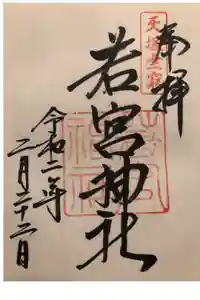 奉拝
若宮神社
令和二年
二月二十二日